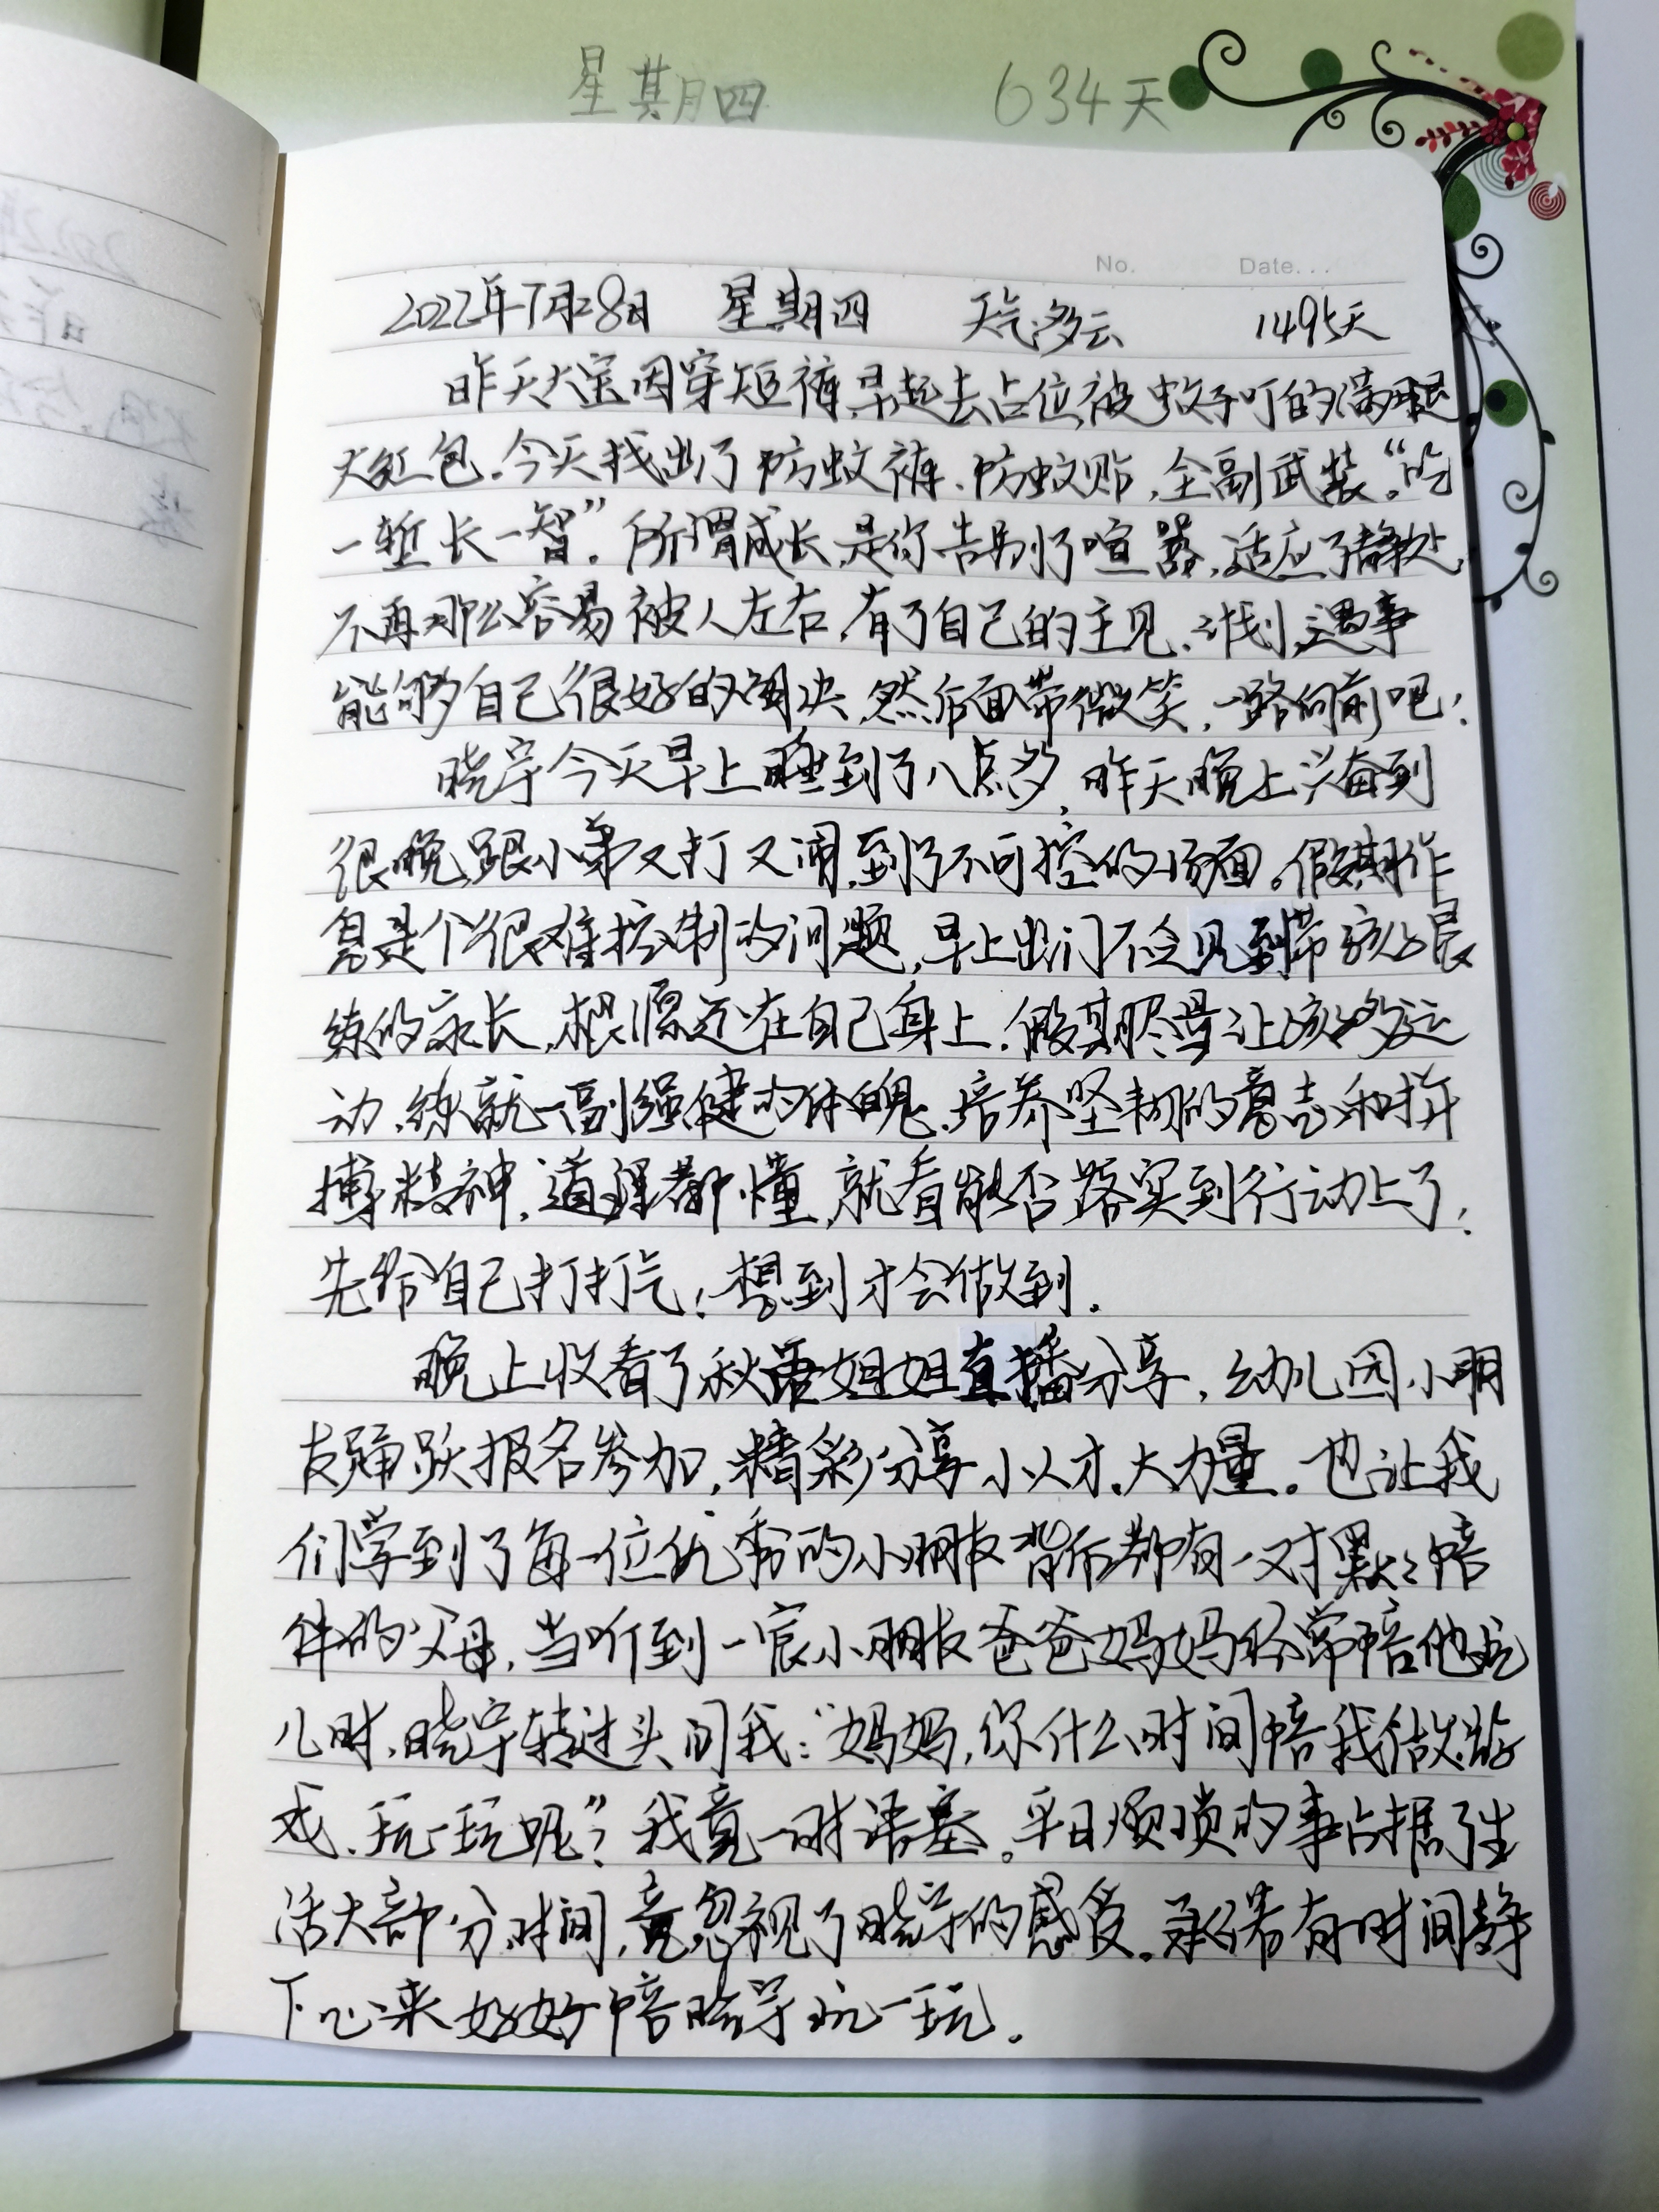 星期四 634天
No. Date...
2022年7月28日 星期四 天气:多云 1495天
昨天大宝因穿短裤,早起去占位,被蚊子叮的满腿
大红包.今天找出了防蚊裤、防蚊贴,全副武装。“吃
一堑长一智”.所谓成长,是你告别了喧嚣,适应了静处,
不再那么容易被人左右,有了自己的主见、计划,遇事
能够自己很好的解决,然后面带微笑,一路向前吧!
晓宇今天早上睡到了八点多,昨天晚上兴奋到
很晚,跟小弟又打又闹,到了不可控的场面。假期作
息是个很难控制的问题,早上出门不会见到带孩子晨
练的家长,根源还在自己身上.假期尽量让孩子多运
动,练就一副强健的体魄.培养坚韧的意志和拼
搏精神,道理都懂,就看能否落实到行动上了!
先给自己打打气!想到才会做到.
晚上收看了秋语姐姐直播分享,幼儿园小朋
友踊跃报名参加,精彩分享小人才.大力量。也让我
们学到了每一位优秀的小朋友背后都有一对默默陪
伴的父母,当听到一宸小朋友爸爸妈妈经常陪他玩
儿时,晓宇转过头问我:“妈妈,你什么时间陪我做游
戏、玩一玩呢”?我竟一时语塞。平日烦琐的事占据了生
活大部分时间,竟忽视了晓宇的感受.承诺若有时间静
下心来好好陪晓宇玩一玩.